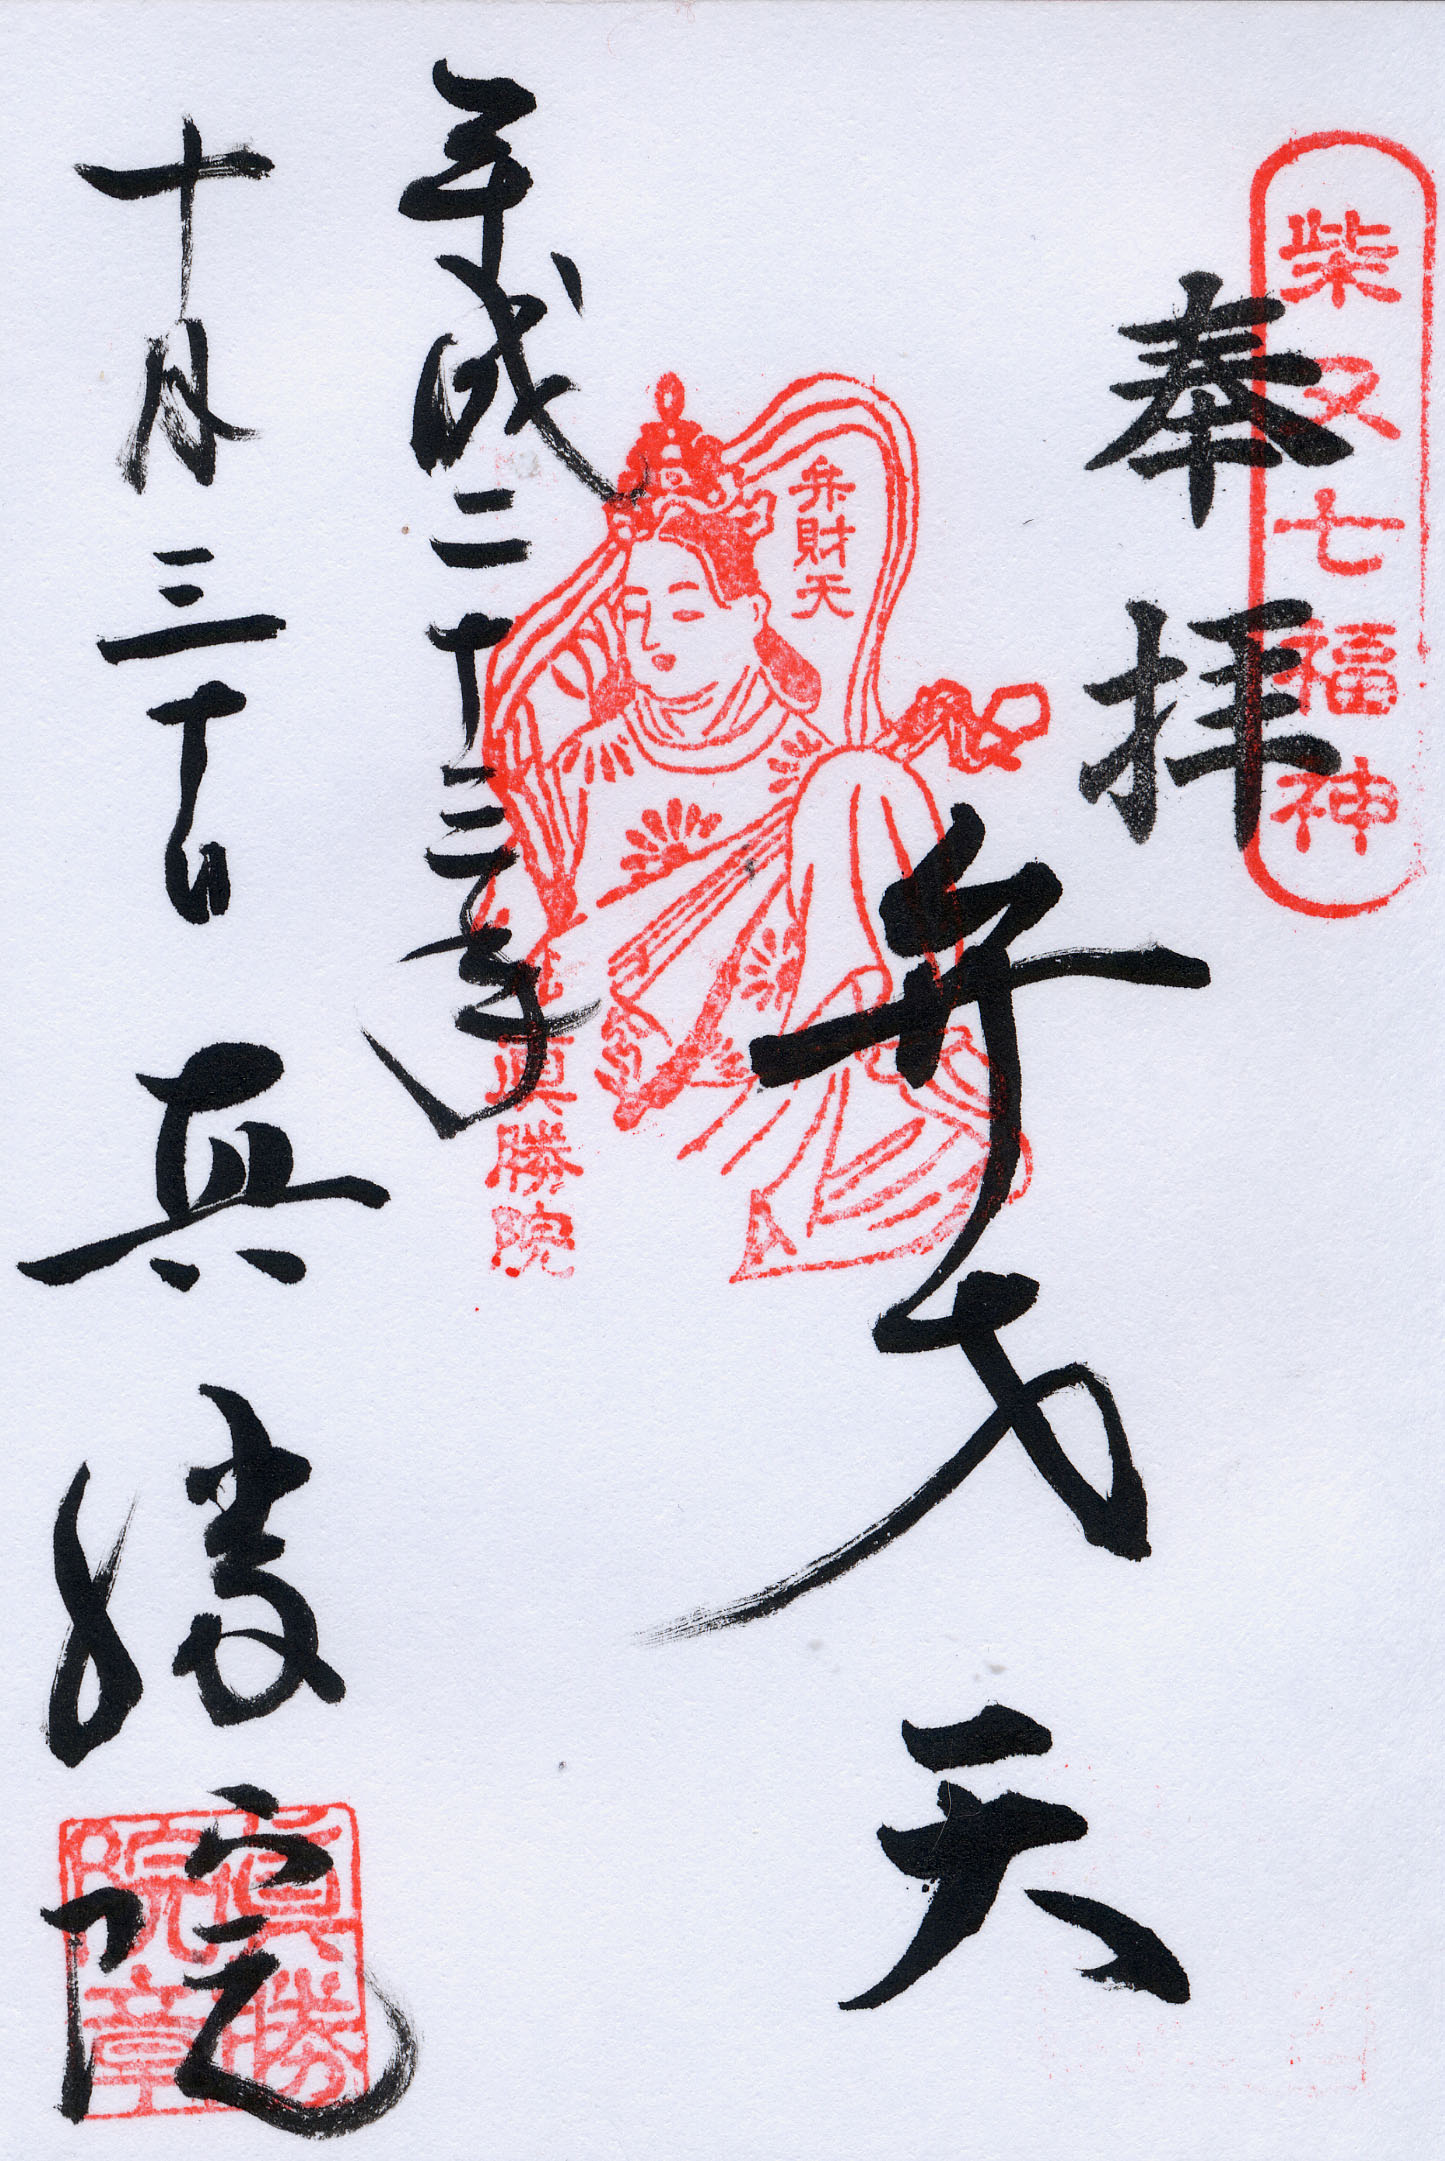 柴又七福神
奉拝
弁才天
弁財天
平成二十三年
眞勝院
十月三十日
真勝院
眞勝
院章